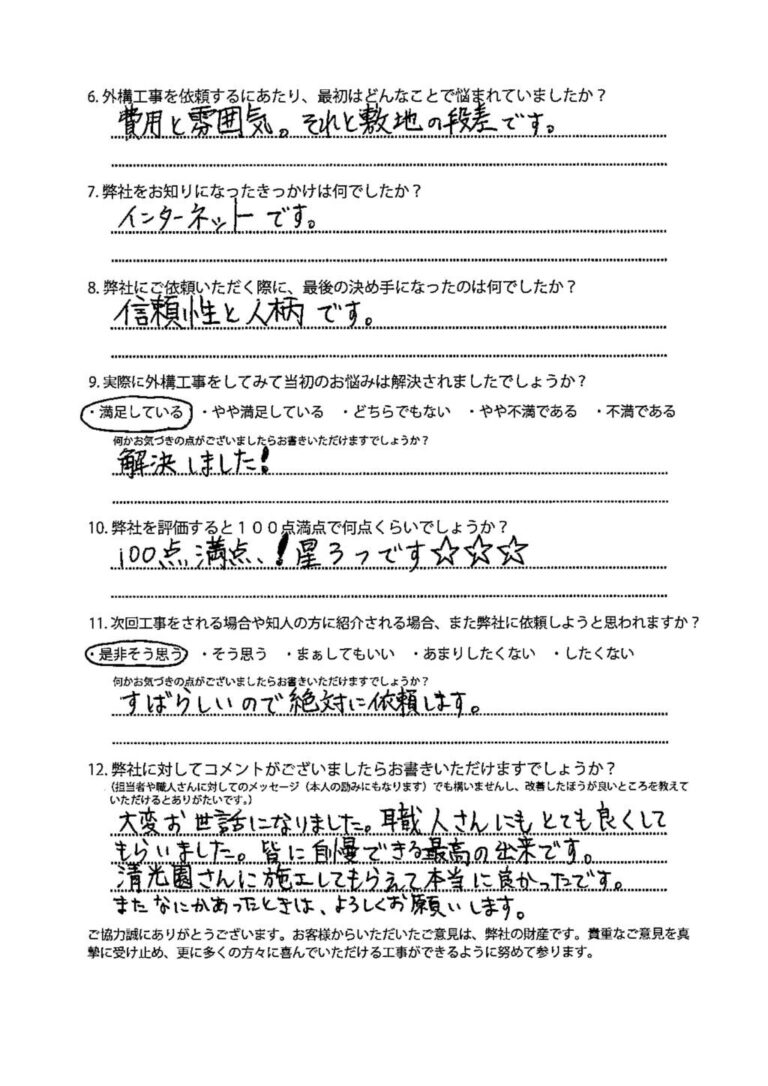 6. 外構工事を依頼するにあたり、最初はどんなことで悩まれていましたか？
費用と雰囲気。それと敷地の段差です。
7. 弊社をお知りになったきっかけは何でしたか？
インターネットです。
8. 弊社にご依頼いただく際に、最後の決め手になったのは何でしたか？
信頼性と人柄です。
9. 実際に外構工事をしてみて当初のお悩みは解決されましたでしょうか？
・満足している ・やや満足している ・どちらでもない ・やや不満である ・不満である
何かお気づきの点がございましたらお書きいただけますでしょうか？
解決しました!
10. 弊社を評価すると１００点満点で何点くらいでしょうか？
100点満点、!星3つです☆☆☆
11. 次回工事をされる場合や知人の方に紹介される場合、また弊社に依頼しようと思われますか？
・是非そう思う ・そう思う ・まぁしてもいい ・あまりしたくない ・したくない
何かお気づきの点がございましたらお書きいただけますでしょうか？
すばらしいので絶対に依頼します。
12. 弊社に対してコメントがございましたらお書きいただけますでしょうか？
（担当者や職人さんに対してのメッセージ（本人の励みにもなります）でも構いませんし、改善したほうが良いところを教えて
いただけるとありがたいです。）
大変お世話になりました。職人さんにもとても良くして
もらいました。皆に自慢できる最高の出来です。
清光園さんに施工してもらえて本当に良かったです。
またなにかあったときは、よろしくお願いします。
ご協力誠にありがとうございます。お客様からいただいたご意見は、弊社の財産です。貴重なご意見を真
摯に受け止め、更に多くの方々に喜んでいただける工事ができるように努めて参ります。